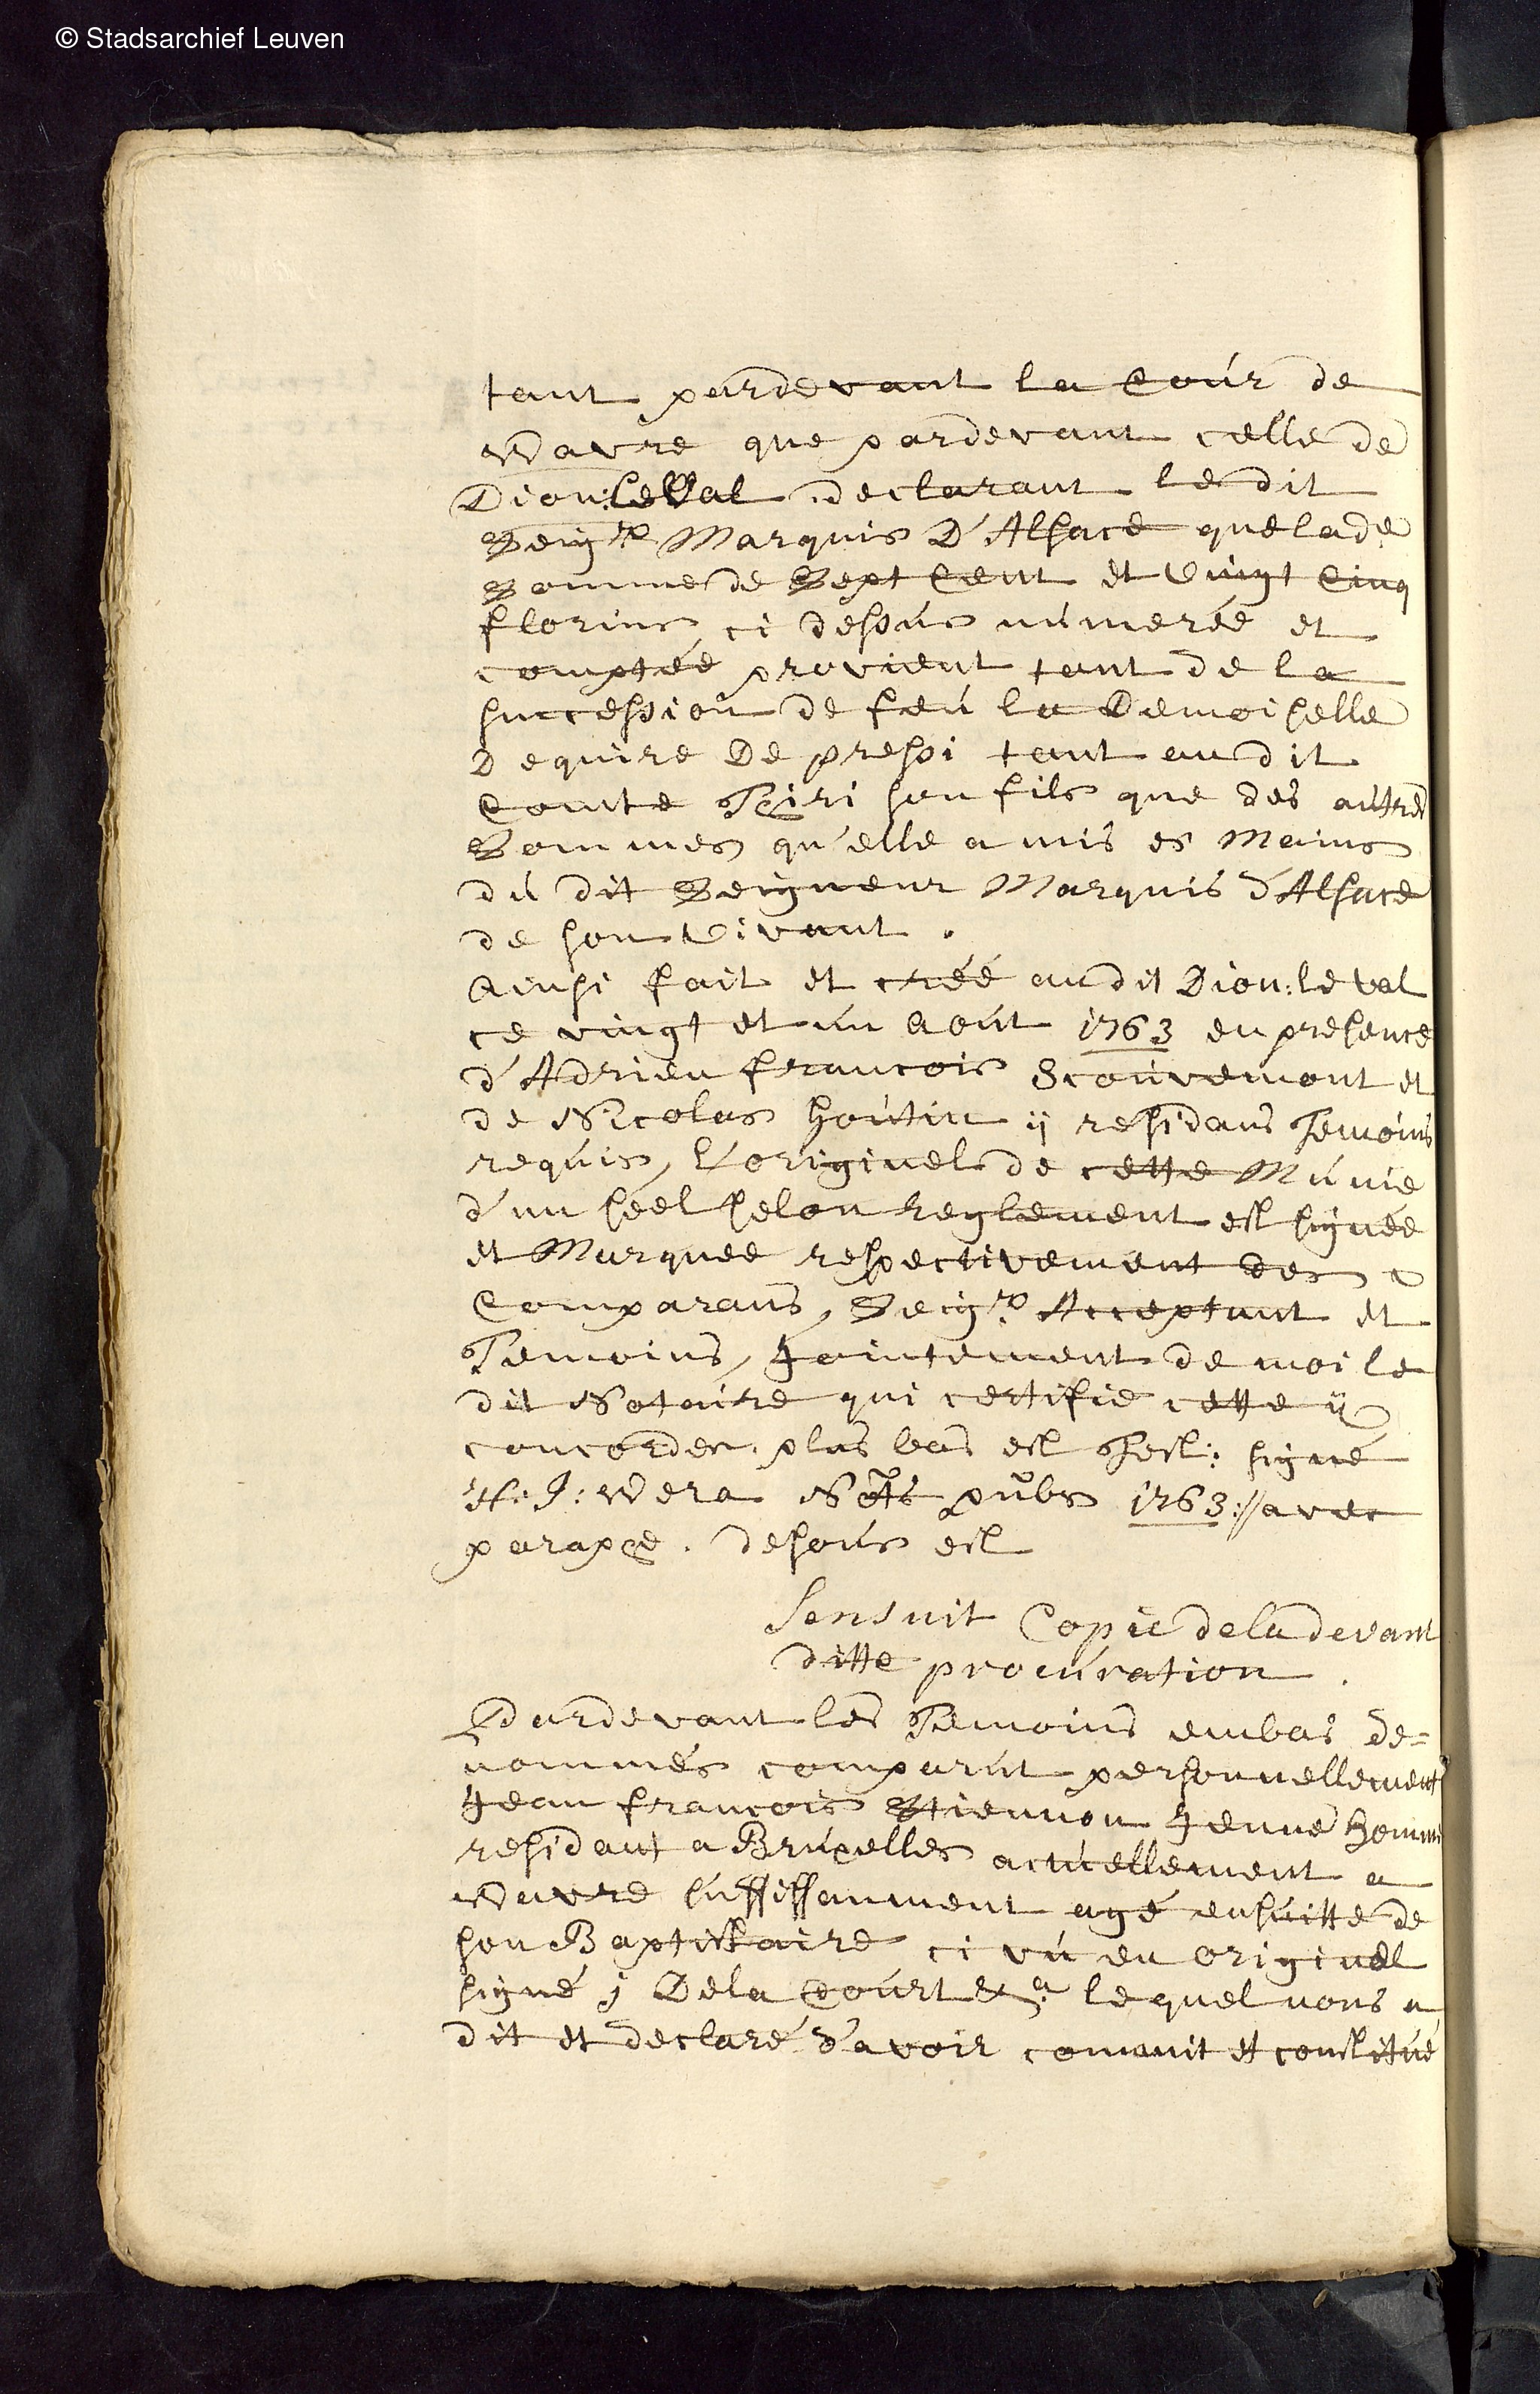 © Stadsarchief Leuven
tant pardevant la Coúr de
Wavre que pardevant celle de
Dion: le Val declarant le dit
Seigr. Marquis D'Alsace que la de
Somme de Sept Cent et Vingt Cinq
florins, ci dessús númerée et
comptée provient tant de la
succession de feú la Demoiselle
Dequire De pressi tant audit
Comte Thiri son fils que des aútres
Sommes qu'elle a mis es Mains
dú dit Seigneur Marquis d'Alsace
de son Vivant.
Ainsi fait et créé audit Dion: le val
ce vingt et ún Aoút 1763 en presence
d'Adrien francois Scoúvemont et
de Nicolas Hoútin ÿ residans Temoins
requis, L'originel de cette Múnie
d'un séel selon Reglement est signée
et Marquee respectivement des
Comparans, Seigr. Acceptant et
Temoins, Jointement de moi le
dit Notaire qui certifie cette ÿ
concorder. plus bas est Test: signé
H: J: Wera Nots pubs 1763:// avec
paraphe. desoús est
Sensuit Copie dela devant
ditte procúration.
Pardevant les Temoins embas de=
nommés comparút personnellement
Jean francois Stiennon Jeune Homme
residant a Brúxelles actúellement a
Wavre súffissamment agé ensúitte de
son Baptistaire ci vú en originel
signé J Dela Coúrt &a. lequel nous a
dit et declaré d'avoir cománit et constitúé